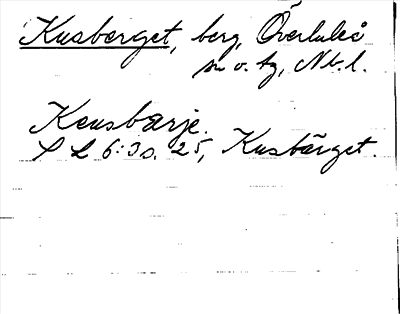 Kusberget, berg, Överluleå
sn o. tg, Nb. l.
Keusbærje.
S L 6:3 s. 25, Kusbärget.